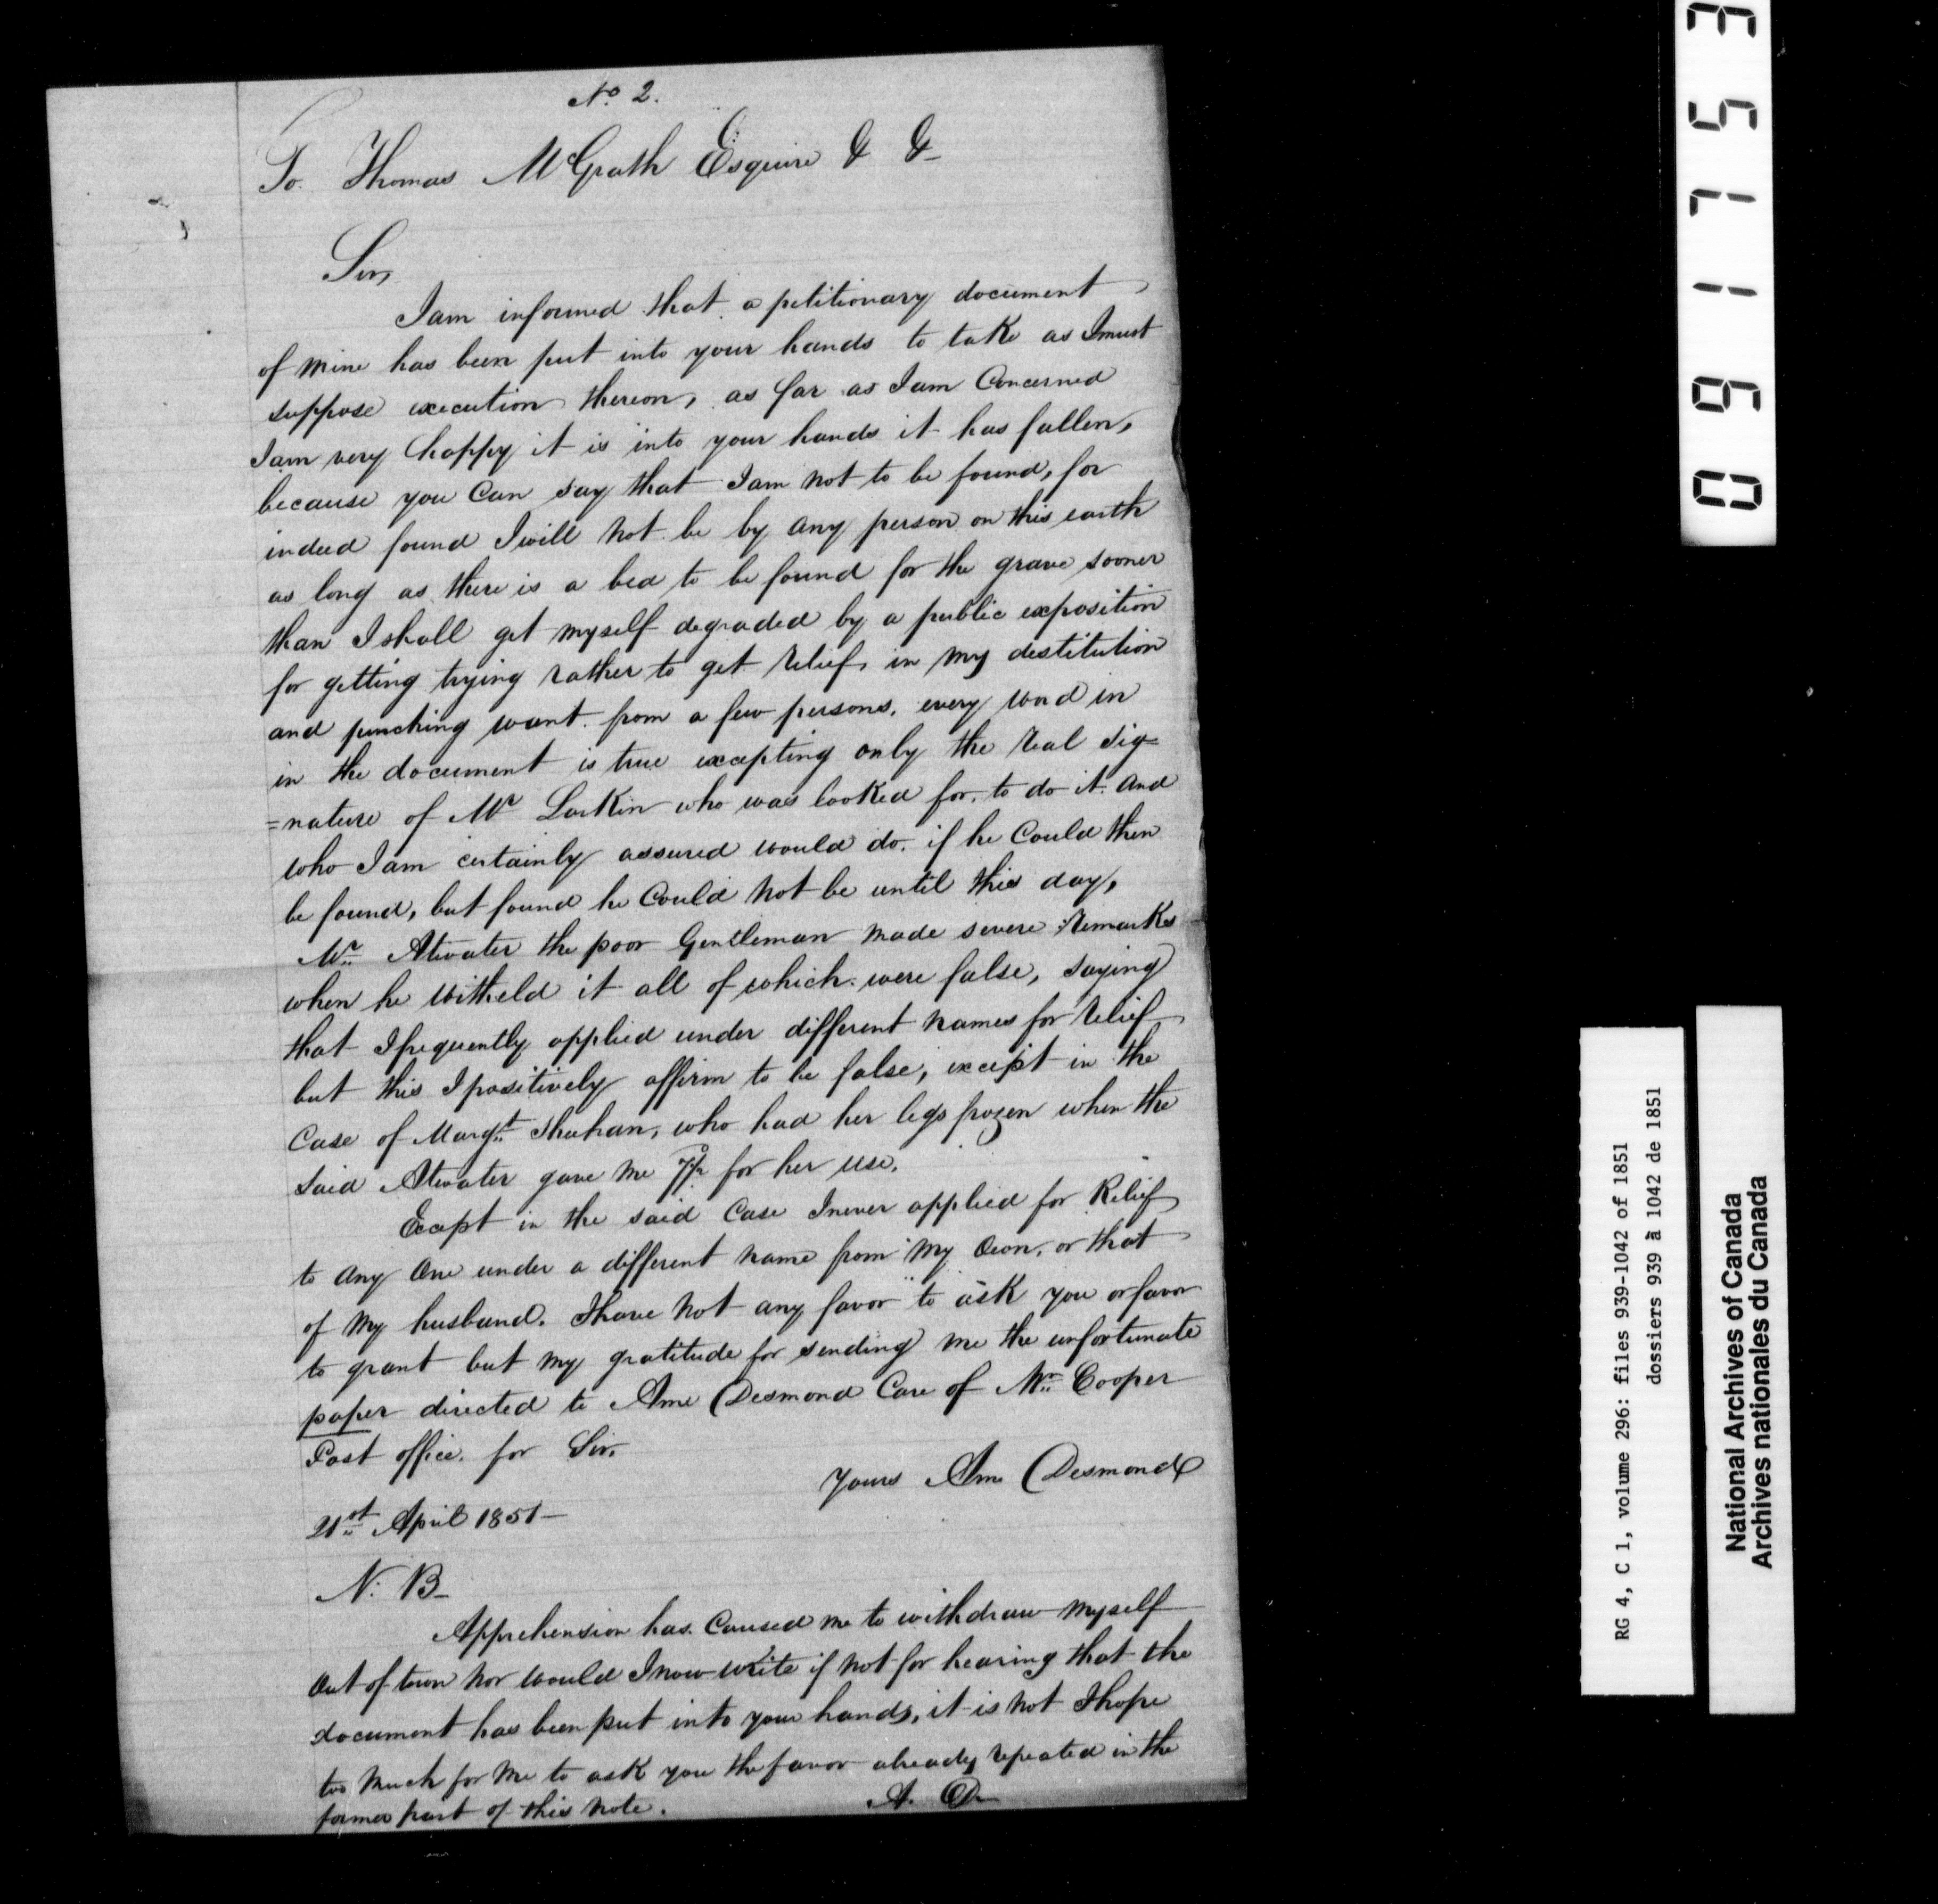 No 2.
To Thomas McGrath Esquire & &
Sir,
I am informed that a petitionary document
of mine has been put into your hands to take as I must
suppose execution thereon, as far as I am Concerned
I am very happy it is into your hands it has fallen,
because you Can say that I am not to be found, for
indeed found I will not be by any person on this earth
as long as there is a bed to be found for the grave sooner
than I shall get myself degraded by a public exposition
for getting trying rather to get relief in my destitution
and pinching want from a few persons, every word in
in the document is true excepting only the real sig=
=nature of Mr Larkin who was looked for to do it and
who I am certainly assured would do if he Could then
be found, but found he Could not be until this day,
Mr Atwater the poor Gentleman made severe remarks
when he witheld it all of which were false, saying
that I frequently applied under different names for relief
but this I positively affirm to be false, except in the
Case of Margt Shuhan, who had her legs frozen when the
said Atwater gave me for her use.
Except in the said Case I never applied for Relief
to any One under a different name from my Own, or that
of my husband. I have not any favor to ask you or favor
to grant but my gratitude for sending me the unfortunate
paper directed to Ann Desmond Care of Mr Cooper
Post office. for Sir,
Yours Ann Desmond
21st April 1851
N. B
Apprehension has Caused me to withdraw myself
Out of town nor would I now write if not for hearing that the
document has been put into your hands, it is not I hope
too much for me to ask you the favor already repeated in the
former part of this note.
A. D
091753
RG 4, C 1, volume 296: files 939-1042 of 1851
dossiers 939 à 1042 de 1851
National Archives of Canada
Archives nationales du Canada